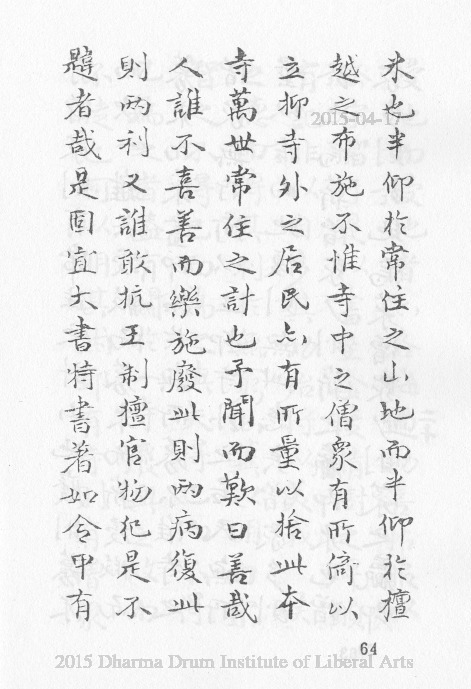 米也半仰於常住之山地而半仰於檀
越之布施不惟寺中之僧衆有所倚以
立抑寺外之居民亦有所量以捨此本
寺萬世常住之計也予聞而歎曰善哉
人誰不喜善而樂施廢此則两病復此
則两利又誰敢抗王制擅官物犯是不
韙者哉是固宜大書特書著如令甲有
2015-04-17
64
2015 Dharma Drum Institute of Liberal Arts